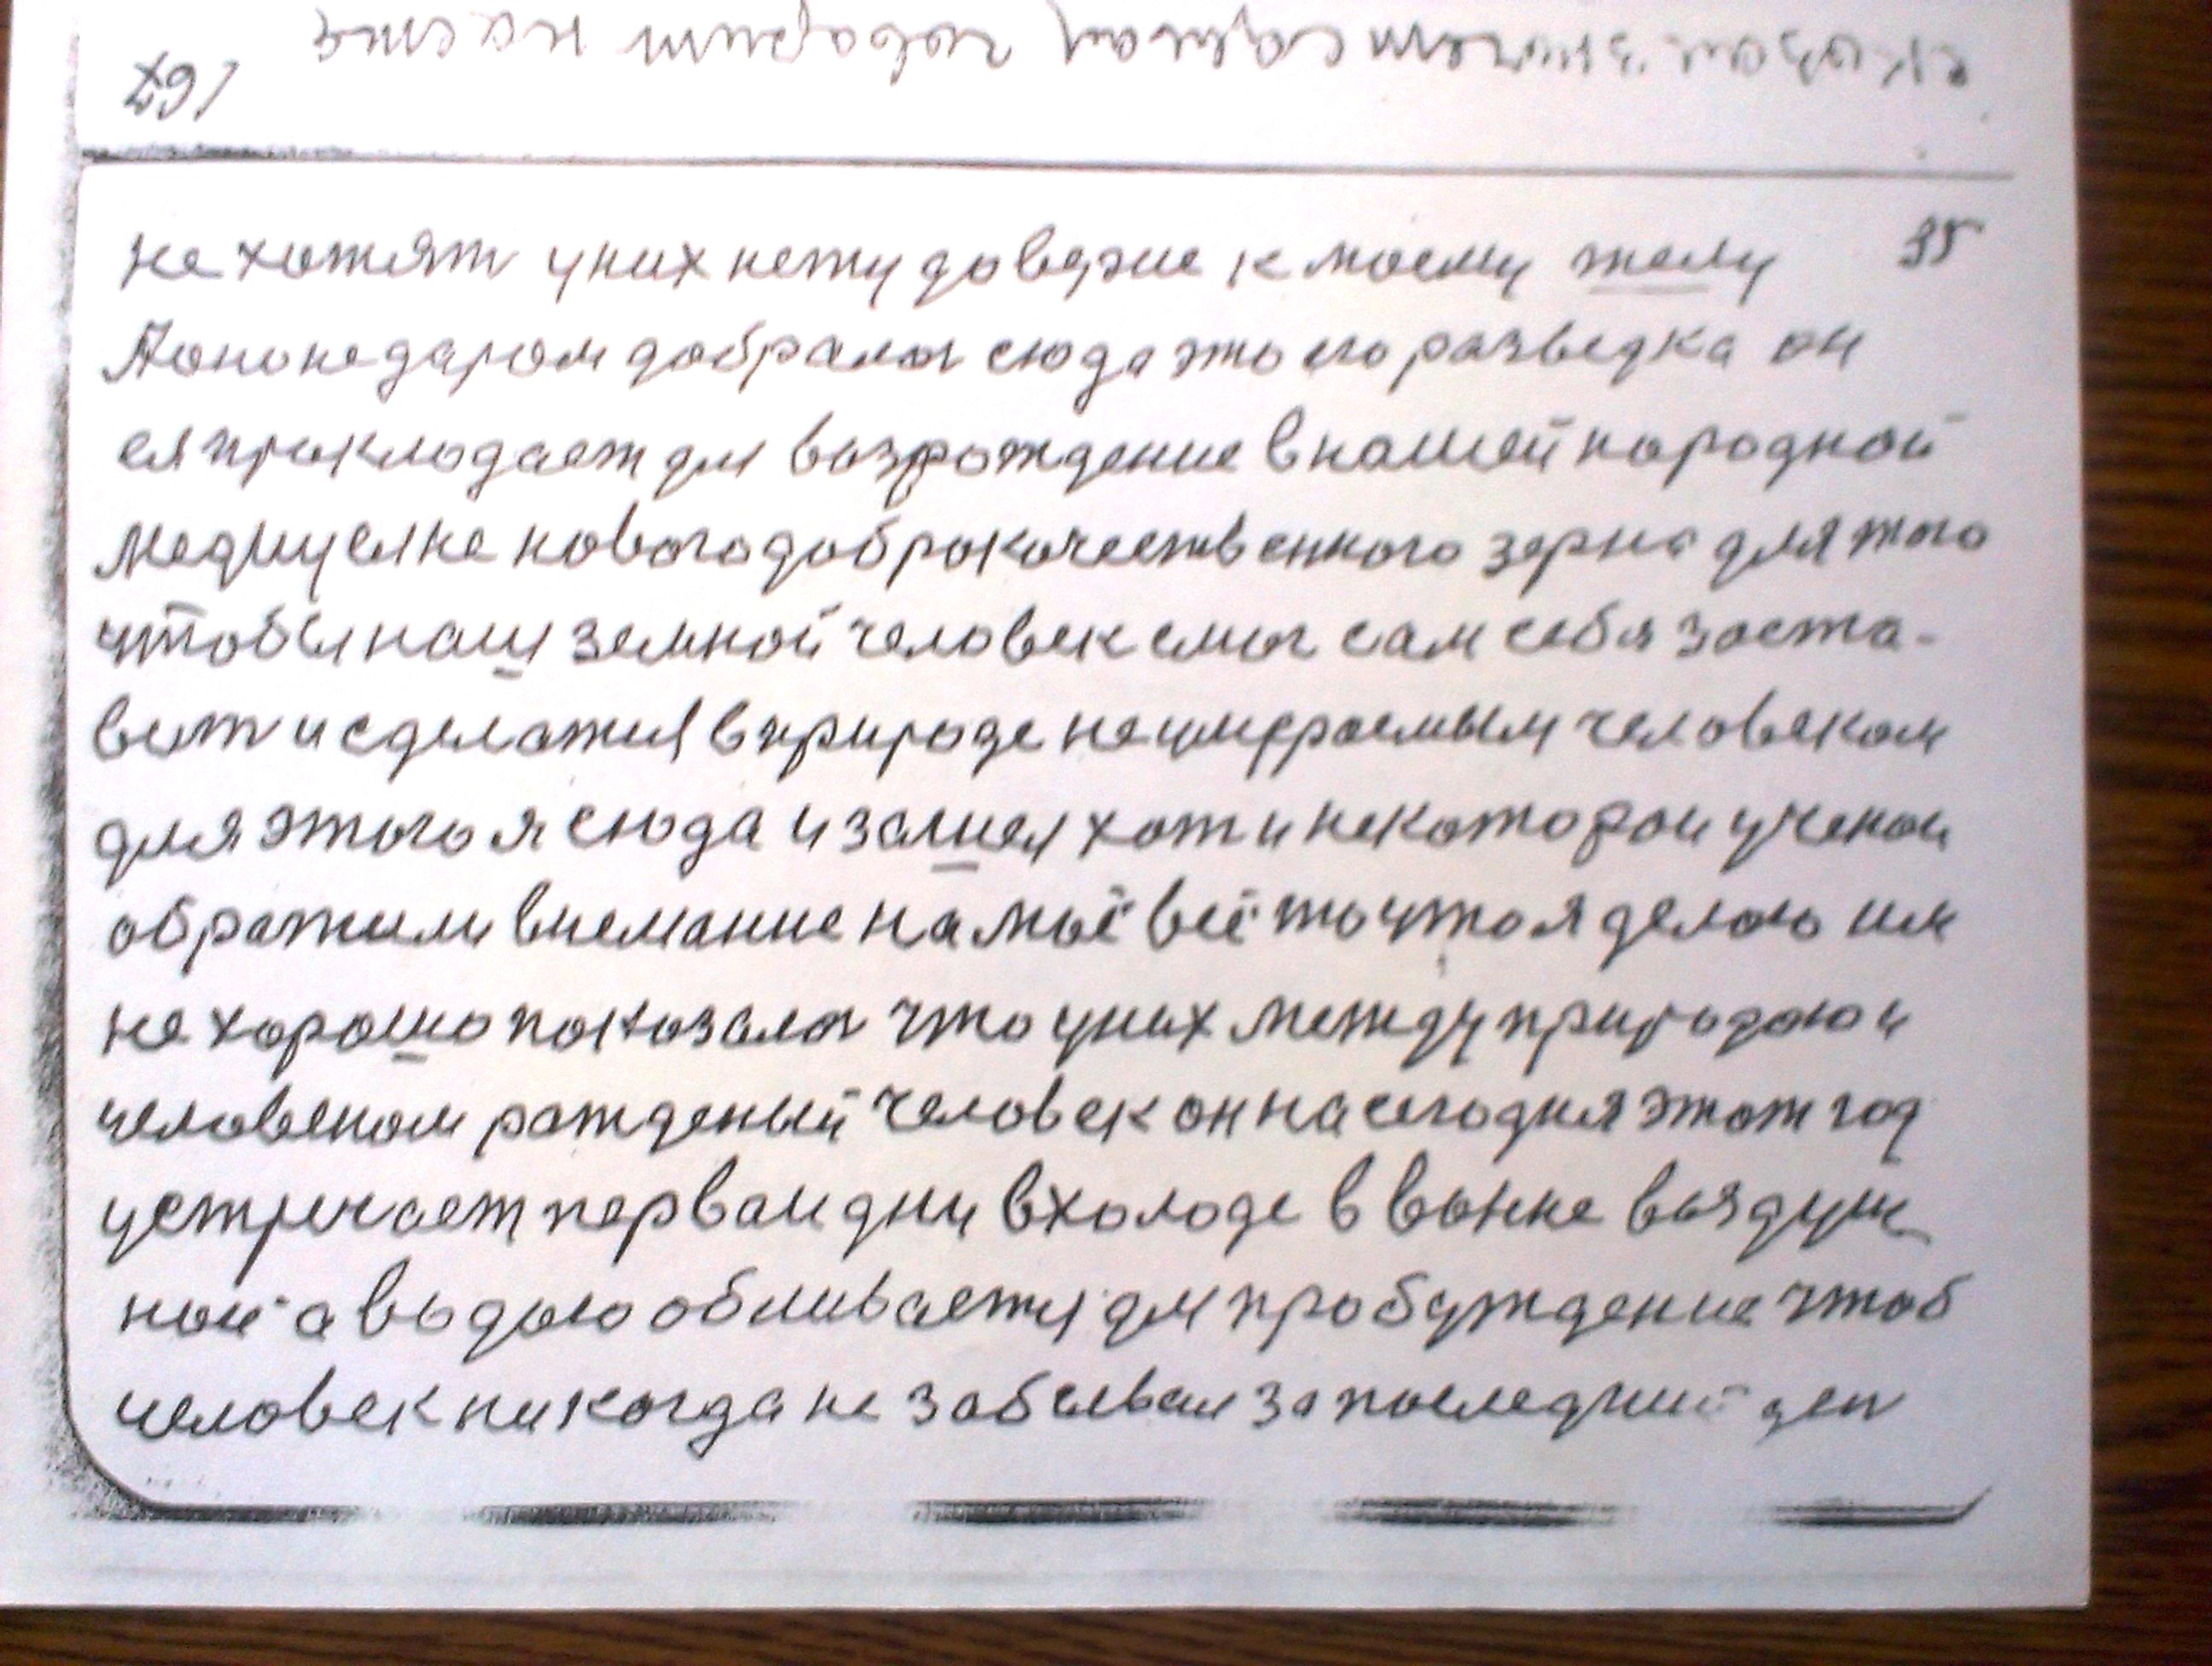 не хотят у них нету доверие к моему телу 35
А оно не даром добралос сюда это его разведка он
ея прикладает для возрождение в нашей народной
медицыне нового доброкачественного зерна для того
чтобы наш земной человек смог сам себя заста-
вит и сделатця в природе не умираемым человеком
для этого я сюда и зашел хоть и некоторои ученои
обратили внемание на моё всё то что я делаю им
не хорошо показалос что у них между природою и
человеком рожденый человек он на сегодня этот год
устричает первои дни в холоде в ванне воздуш
ной а водою обливаетця для пробуждение чтоб
человек никогда не забывал за последний ден